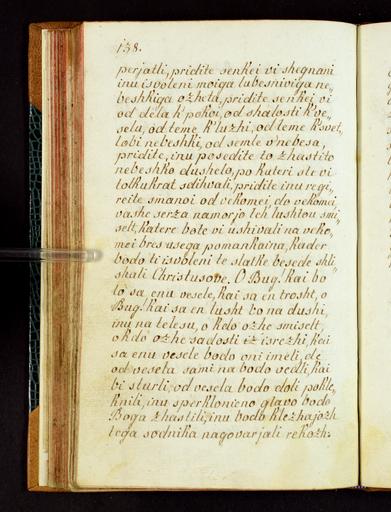 138.
perjatli, pridite senkei vi shegnani
inu isvoleni moiga lubesniviga ne„
beshkiga ozheta, pridite senkei vi
od dela k'pokoi, od shalosti k've„
selu, od teme k'luzhi, od teme k'svet„
lobi nebeshki, od semle v'nebesa,
pridite, inu posedite to zhastito
nebeshko dushelo, po kateri ste vi
tolkukrat sdihvali, pridite inu regi„
reite smanoi od vekomei, do vekomei,
vashe serza namorjo teh lushtou smi„
selt, katere bote vi ushivali na veko„
mei bres usega pomankaina, kader
bodo ti isvoleni te slatke besede shli
shali Christusove. O Bug! kai bo„
to sa enu vesele, kai sa en trosht, o
Bug! kai sa en lusht bo na dushi,
inu na telesu, o kdo ozhe smiselt,
o kdo ozhe sadosti iz isrezhi, kai
sa enu vesele bodo oni imeli, de
od vesela sami na bodo vedli, kai
bi sturli, od vesela bodo doli pokle„
knili, inu sperklonieno glavo bodo
Boga zhastili, inu bodo klezhajozh
tega sodnika nagovarjali rekozh: